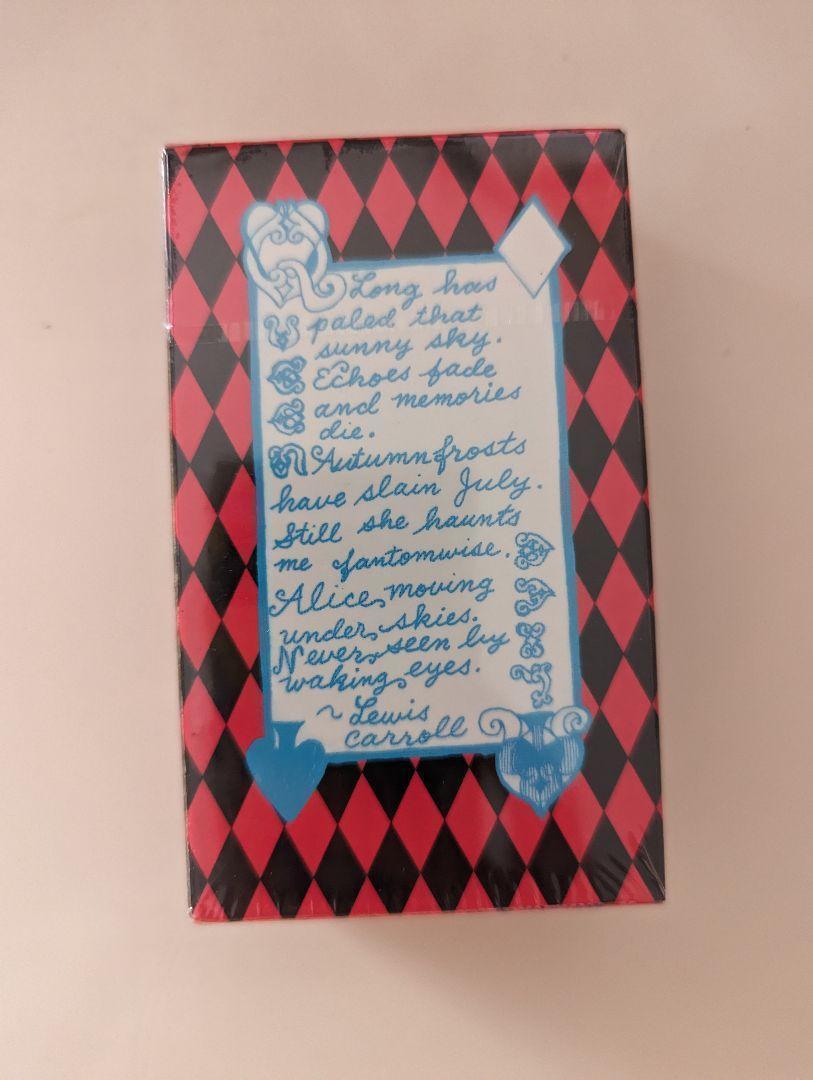 Long has
paled that
sunny sky.
Echoes fade
and memories
die.
Autumn frosts
have slain July.
Still she haunts
me fantomwise.
Alice moving
under skies.
Never seen by
waking eyes.
~ Lewis
Carroll